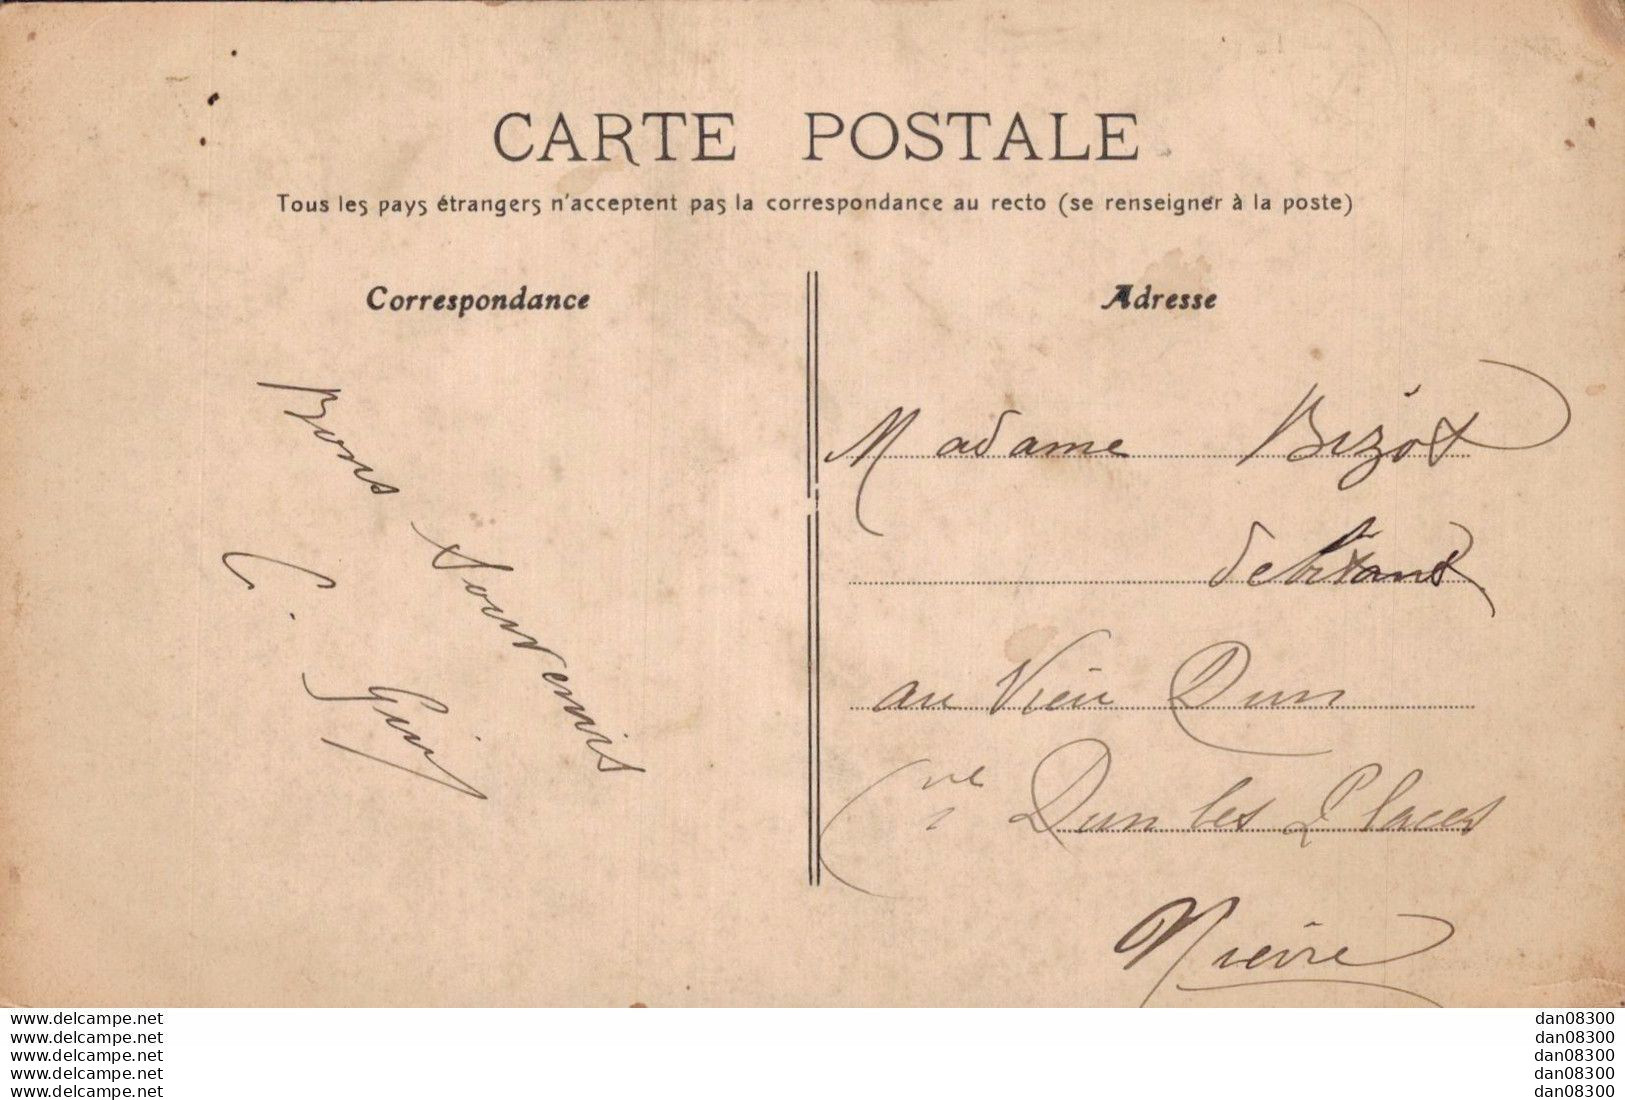 CARTE POSTALE
Tous les pays étrangers n'acceptent pas la correspondance au recto (se renseigner à la poste)
Correspondance
Bons Souvenirs
C.
Adresse
Madame Bizot
debitant
au Vieu Dun
Cne Dun les Places
Nièvre
www.delcampe.net
www.delcampe.net
www.delcampe.net
www.delcampe.net
www.delcampe.net
dan08300
dan08300
dan08300
dan08300
dan08300